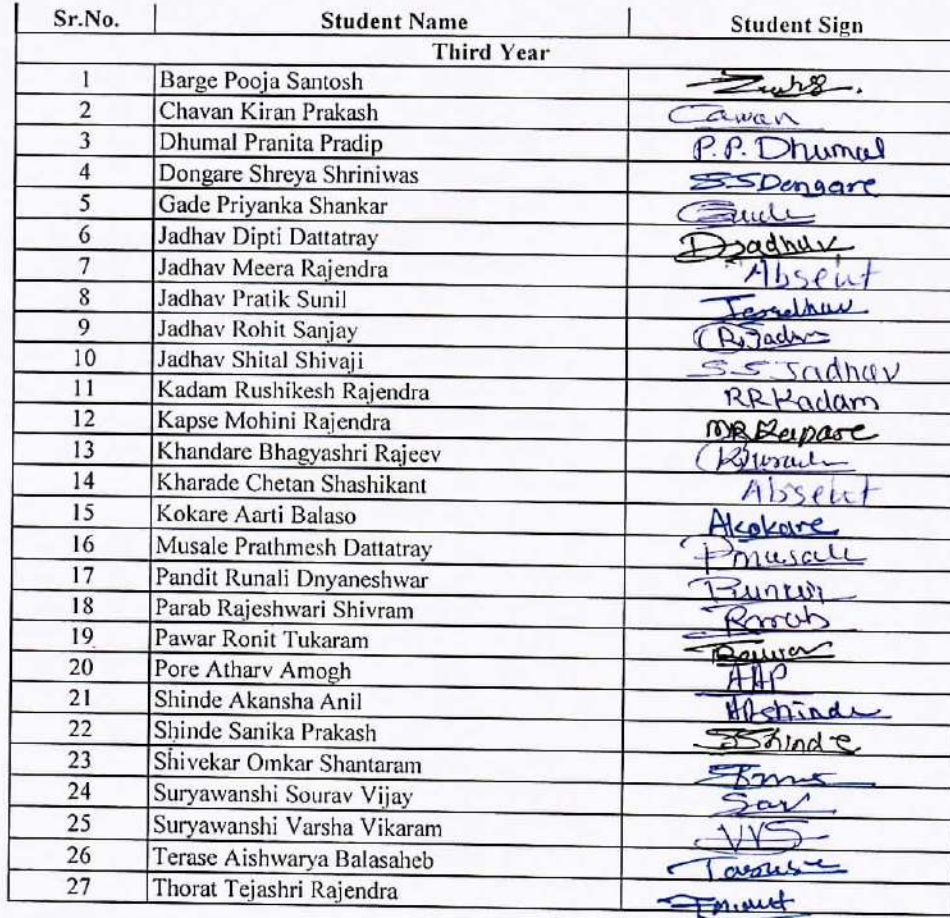 Sr.No. Student Name Student Sign
Third Year
1 Barge Pooja Santosh
2 Chavan Kiran Prakash
3 Dhumal Pranita Pradip P.P. Dhumal
4 Dongare Shreya Shriniwas S.S Dongare
5 Gade Priyanka Shankar
6 Jadhav Dipti Dattatray DJadhav
7 Jadhav Meera Rajendra Absent
8 Jadhav Pratik Sunil
9 Jadhav Rohit Sanjay
10 Jadhav Shital Shivaji S.S Jadhav
11 Kadam Rushikesh Rajendra RRKadam
12 Kapse Mohini Rajendra
13 Khandare Bhagyashri Rajeev
14 Kharade Chetan Shashikant Absent
15 Kokare Aarti Balaso Akokare
16 Musale Prathmesh Dattatray Pmusale
17 Pandit Runali Dnyaneshwar
18 Parab Rajeshwari Shivram
19 Pawar Ronit Tukaram
20 Pore Atharv Amogh AAP
21 Shinde Akansha Anil AAshinde
22 Shinde Sanika Prakash SShinde
23 Shivekar Omkar Shantaram
24 Suryawanshi Sourav Vijay
25 Suryawanshi Varsha Vikaram VVS
26 Terase Aishwarya Balasaheb
27 Thorat Tejashri Rajendra